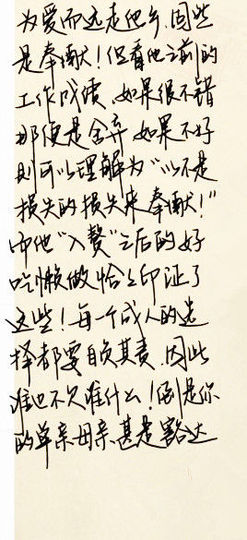 为爱而远走他乡.固然
是奉献！但看他之前的
工作成绩.如果很不错
那便是舍弃.如果不好
则可以理解为“以不是
损失的损失来奉献！”
而他“入赘”之后的好
吃懒做恰恰印证了
这些！每一个成人的选
择都要自负其责.因此
谁也不欠谁什么！倒是你
的单亲母亲.甚是豁达